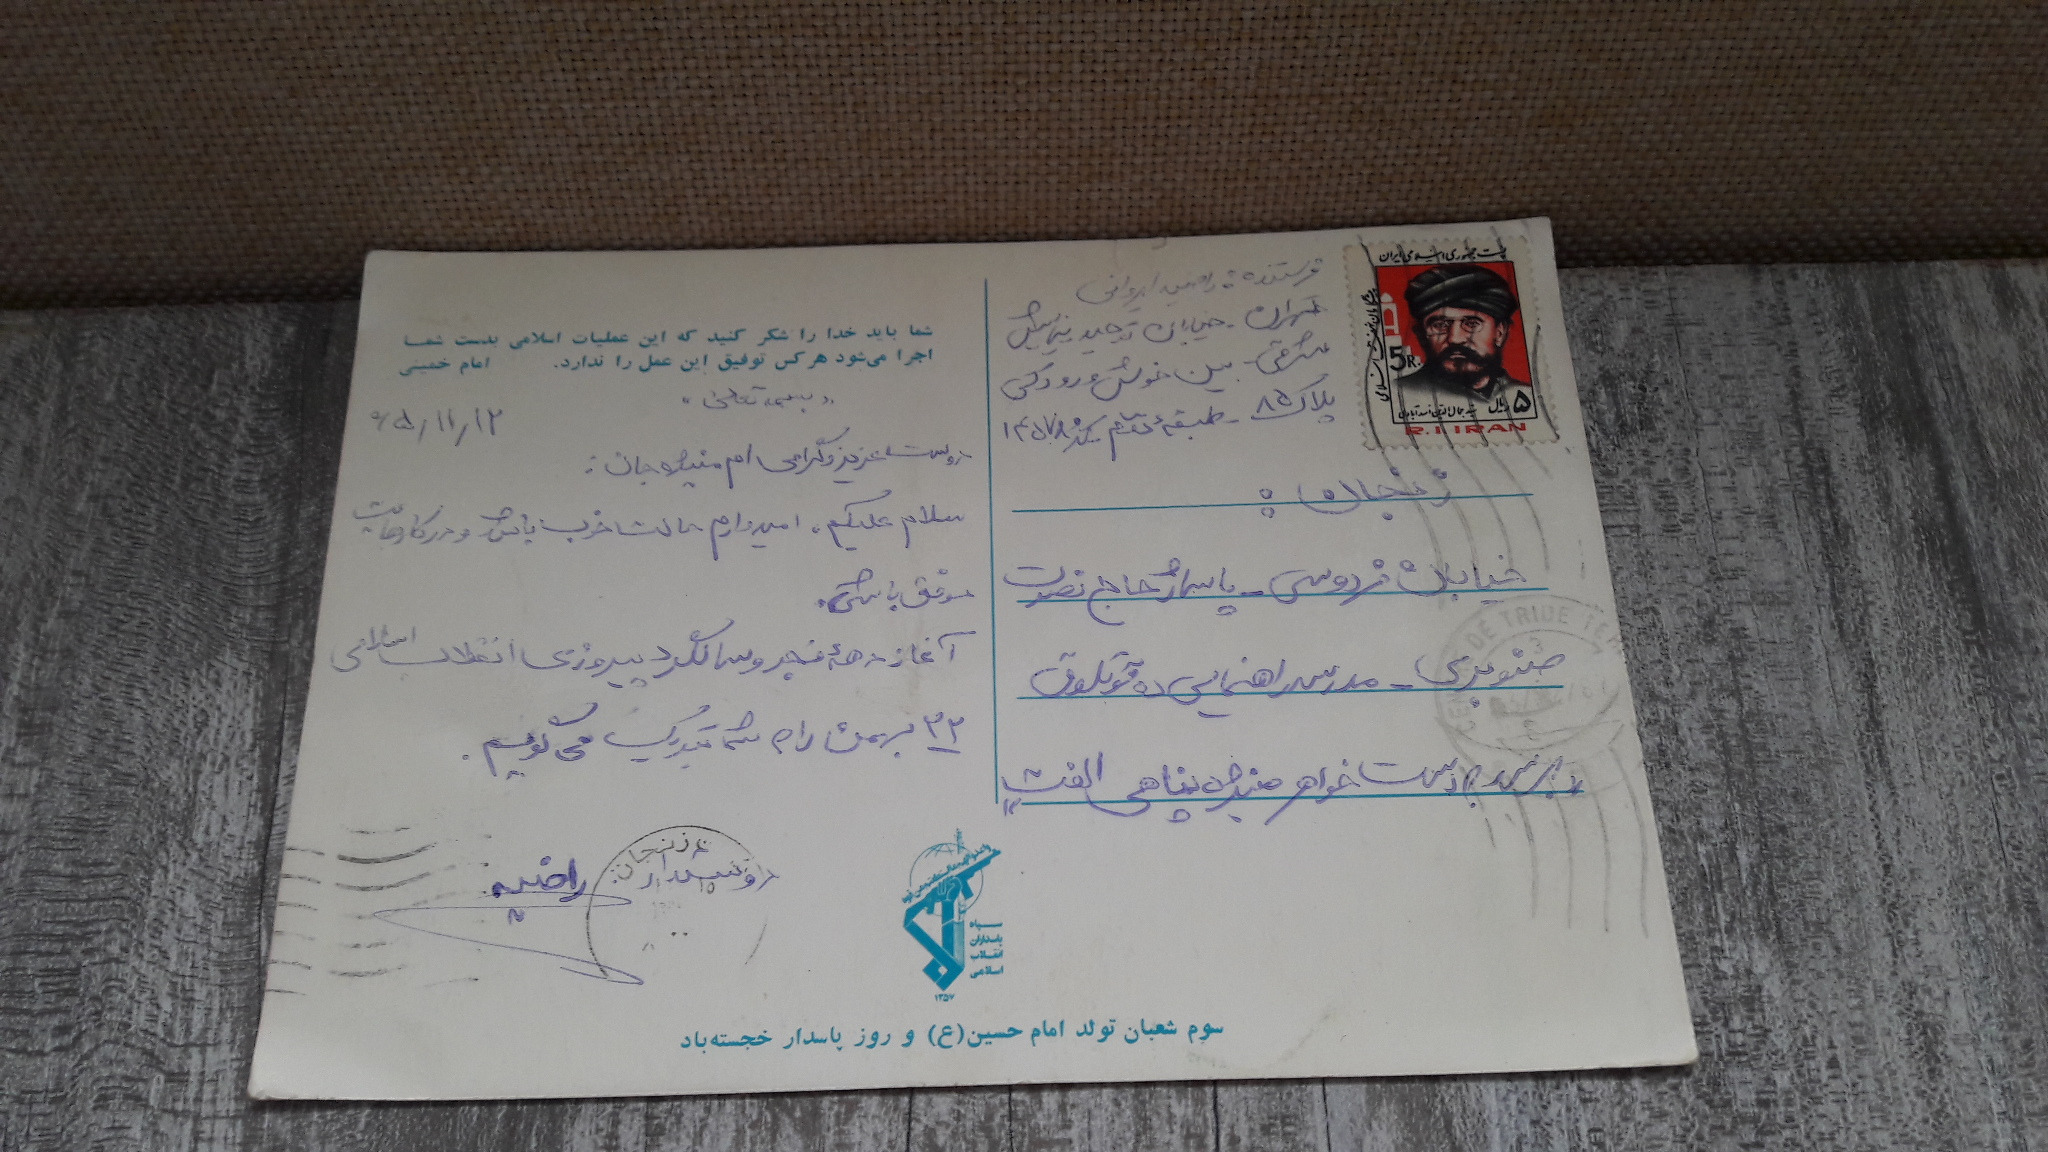 شما باید خدا را شکر کنید که این عملیات اسلامی بدست شما
اجرا می‌شود هر کس توفیق این عمل را ندارد. امام خمینی
« بسمه تعالی »
۶۵/۱۱/۱۲
دوست عزیز و گرامی ام منیژه جان :
سلام علیکم، امیدوارم حالت خوب باشد و در کارهایت
موفق باشی.
آغاز دههٔ فجر و سالگرد پیروزی انقلاب اسلامی
۲۲ بهمن را به شما تبریک می گویم.
راضیه
فرستنده : راضیه ایروانی
تهران - خیابان توحید
شرقی - بین خوش و رودکی
پلاک ۸۵ - طبقه
زنجان :
خیابان فردوسی - پاساژ حاج نصرت
صنوبری - مدرسه راهنمایی
برسد بدست خواهر منیژه پناهی الفت
پست جمهوری اسلامی ایران
5 R.
۵ ریال
سید جمال الدین اسدآبادی
R.I.IRAN
DE TRIDE TE
زنجان
سپاه
پاسداران
انقلاب
اسلامی
۱۳۵۷
سوم شعبان تولد امام حسین(ع) و روز پاسدار خجسته‌باد